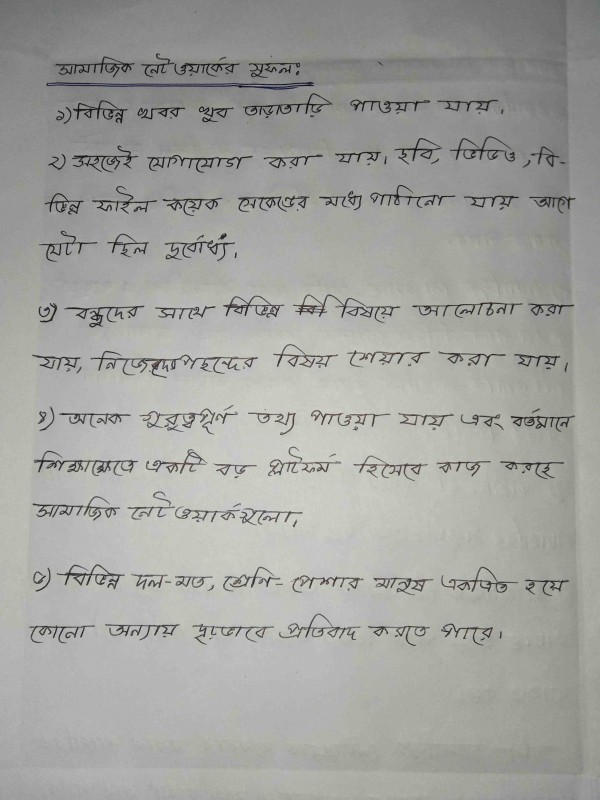 সামাজিক নেটওয়ার্কের সুফল:
১) বিভিন্ন খবর খুব তাড়াতাড়ি পাওয়া যায়।
২) সহজেই যোগাযোগ করা যায়। ছবি, ভিডিও, বি-
ভিন্ন ফাইল কয়েক সেকেন্ডের মধ্যে পাঠানো যায় আগে
যেটা ছিল দুর্বোধ্য।
৩) বন্ধুদের সাথে বিভিন্ন বিষয়ে আলোচনা করা
যায়, নিজেদের পছন্দের বিষয় শেয়ার করা যায়।
৪) অনেক গুরুত্বপূর্ণ তথ্য পাওয়া যায় এবং বর্তমানে
শিক্ষাক্ষেত্রে একটি বড় প্লাটফর্ম হিসেবে কাজ করছে
সামাজিক নেটওয়ার্কগুলো।
৫) বিভিন্ন দল-মত, শ্রেণি-পেশার মানুষ একত্রিত হয়ে
কোনো অন্যায় দৃঢ়ভাবে প্রতিবাদ করতে পারে।